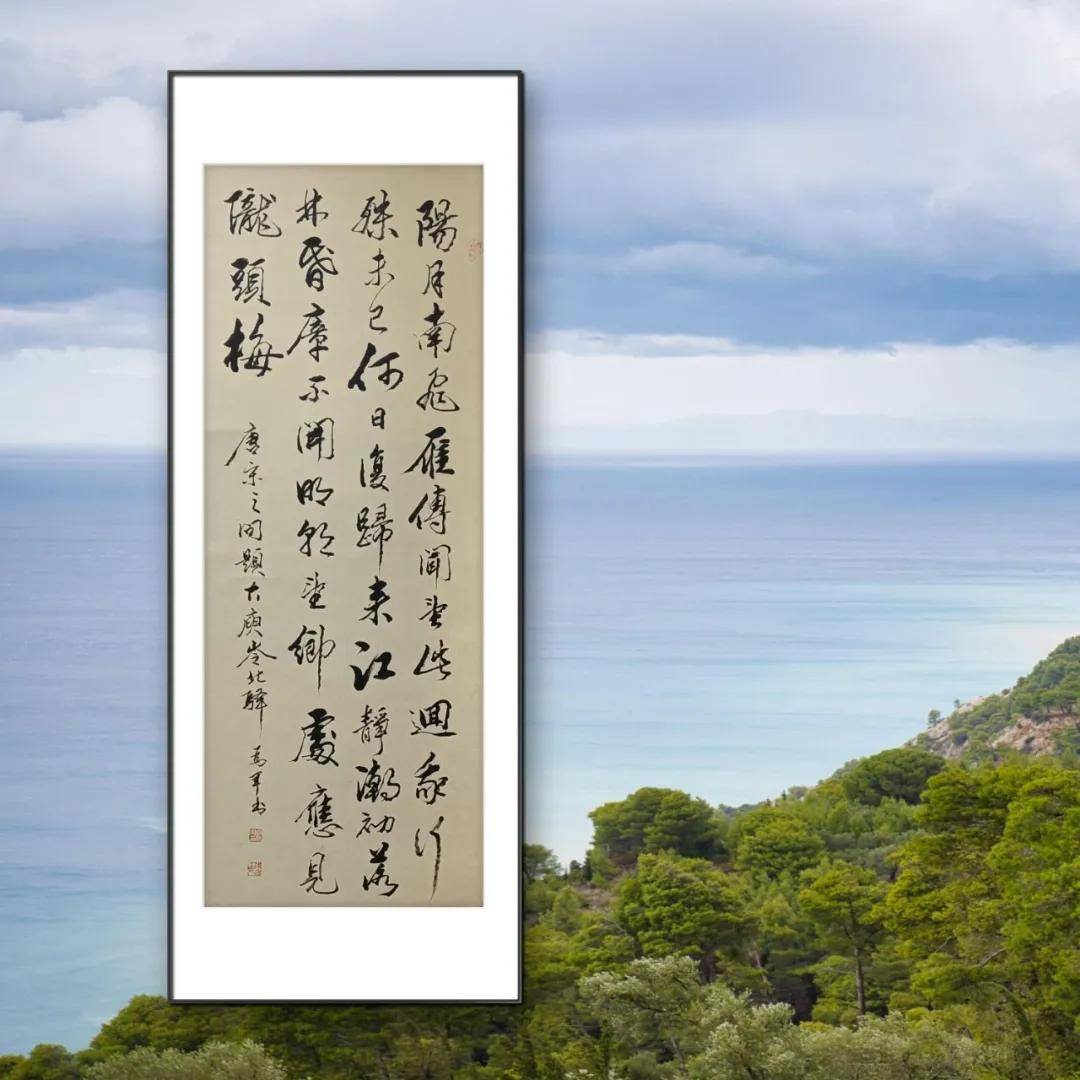 陽月南飛雁傳聞至此迴我行
殊未已何日復歸來江靜潮初落
林昏瘴不開明朝望鄉處應見
隴頭梅
唐宋之問題大庾岺北驛